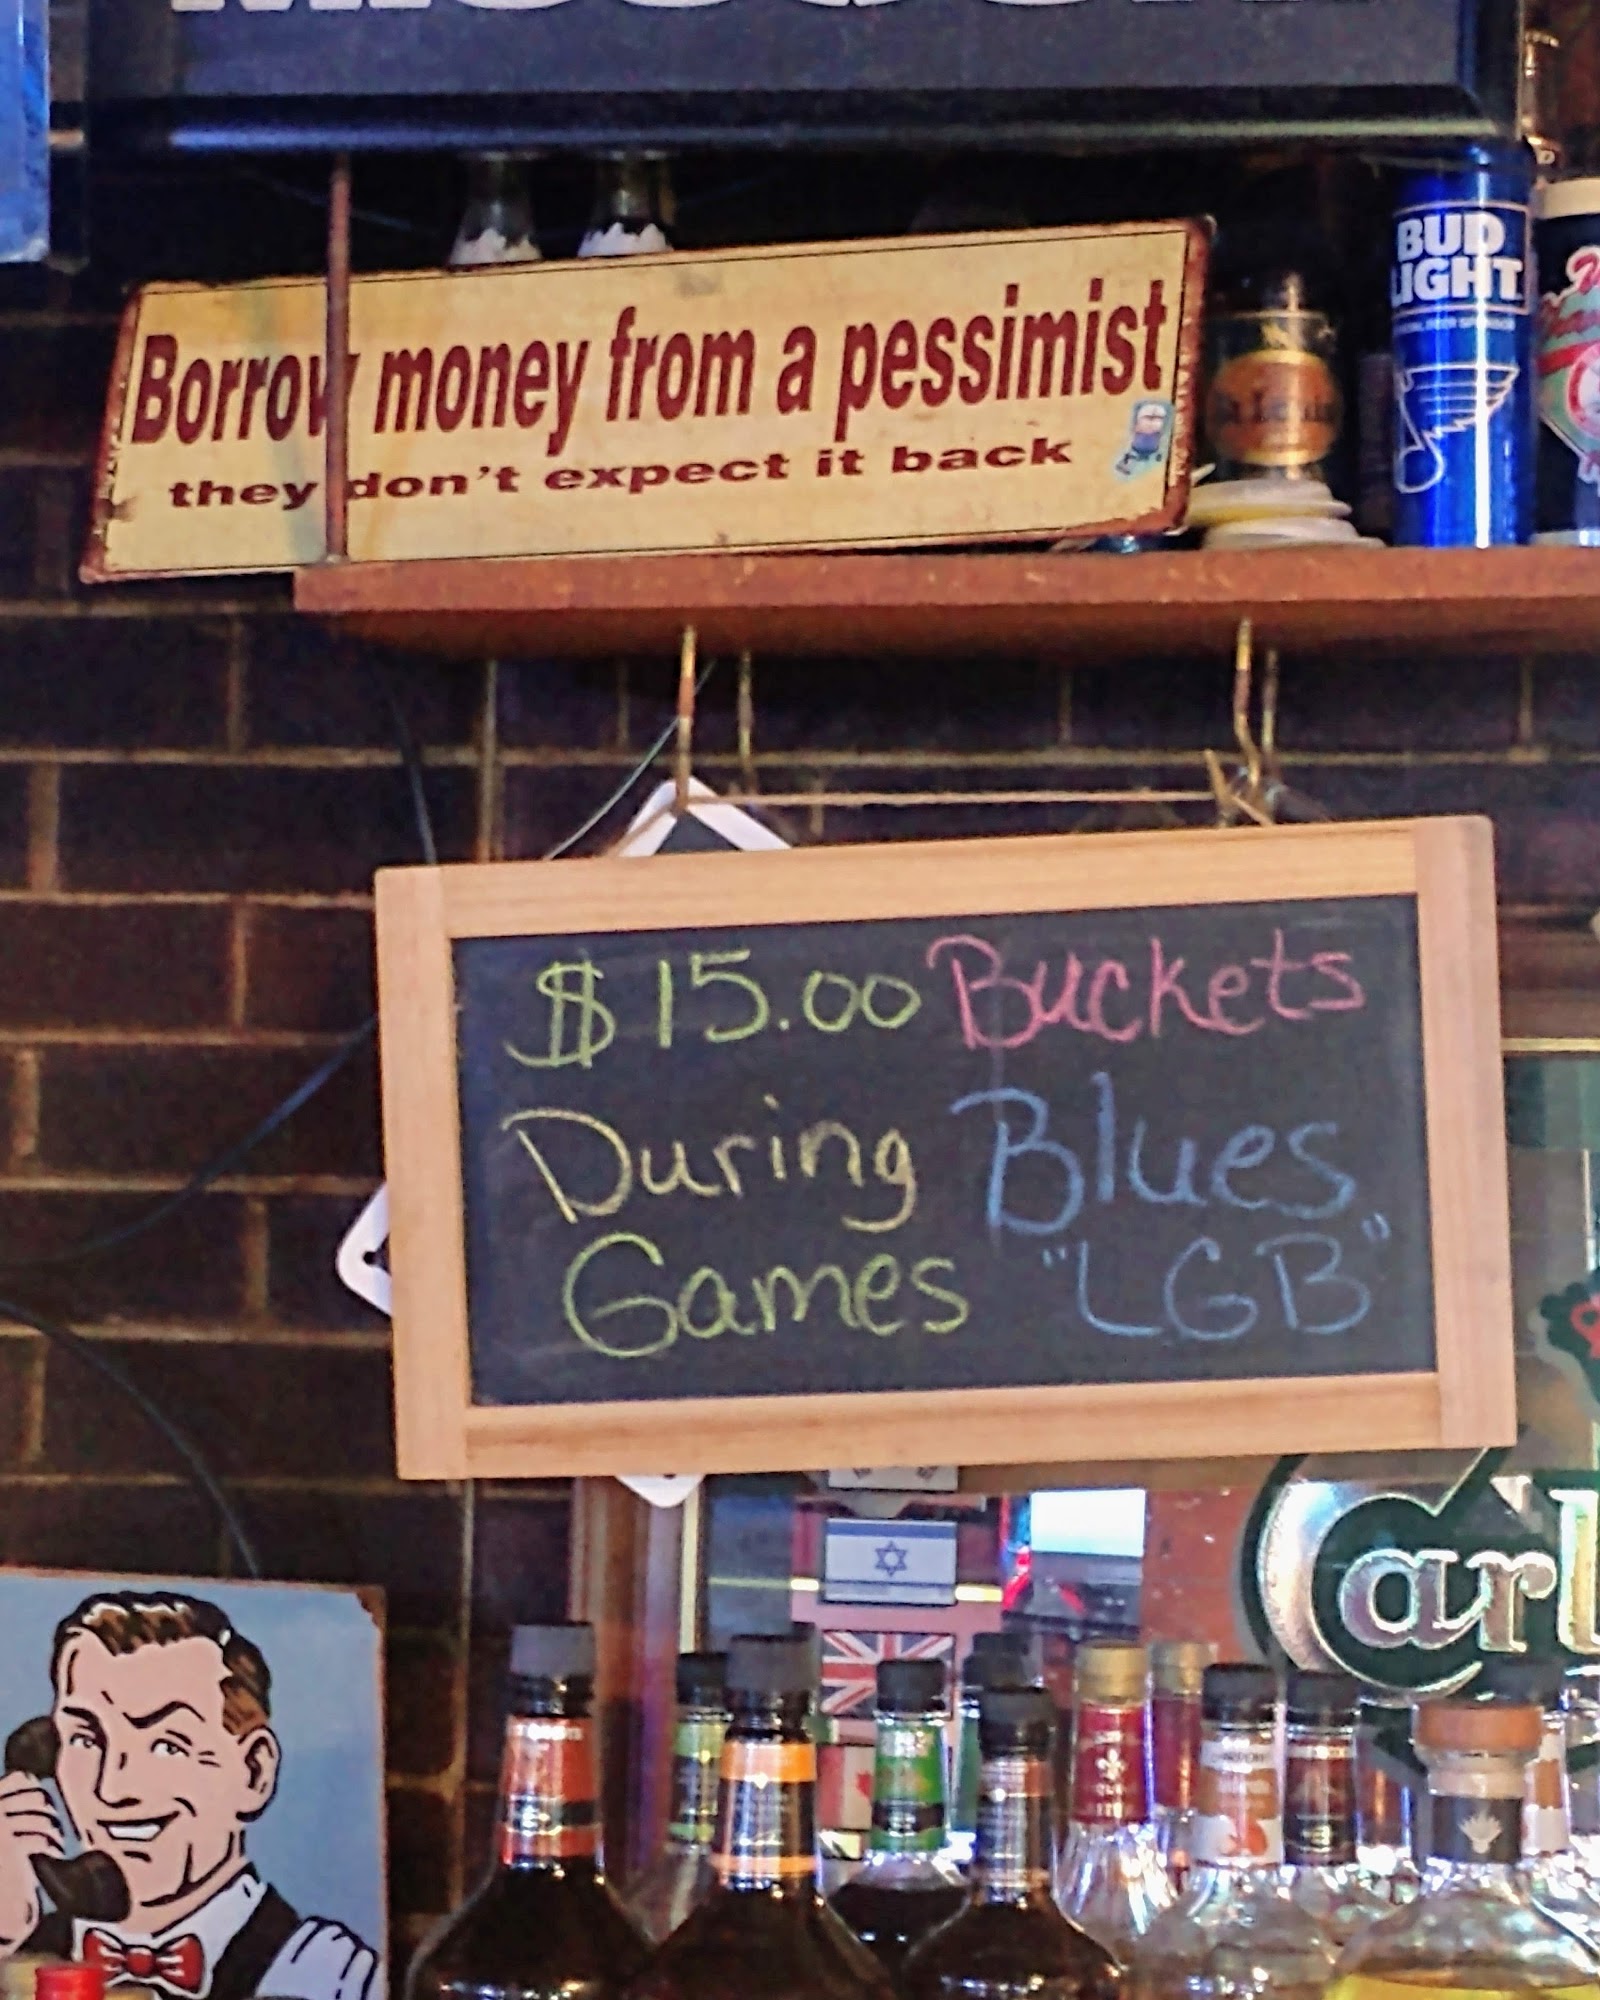 Borrow money from a pessimist
they don't expect it back
BUD
LIGHT
$15.00 Buckets
During Blues
Games "LGB"
Carl